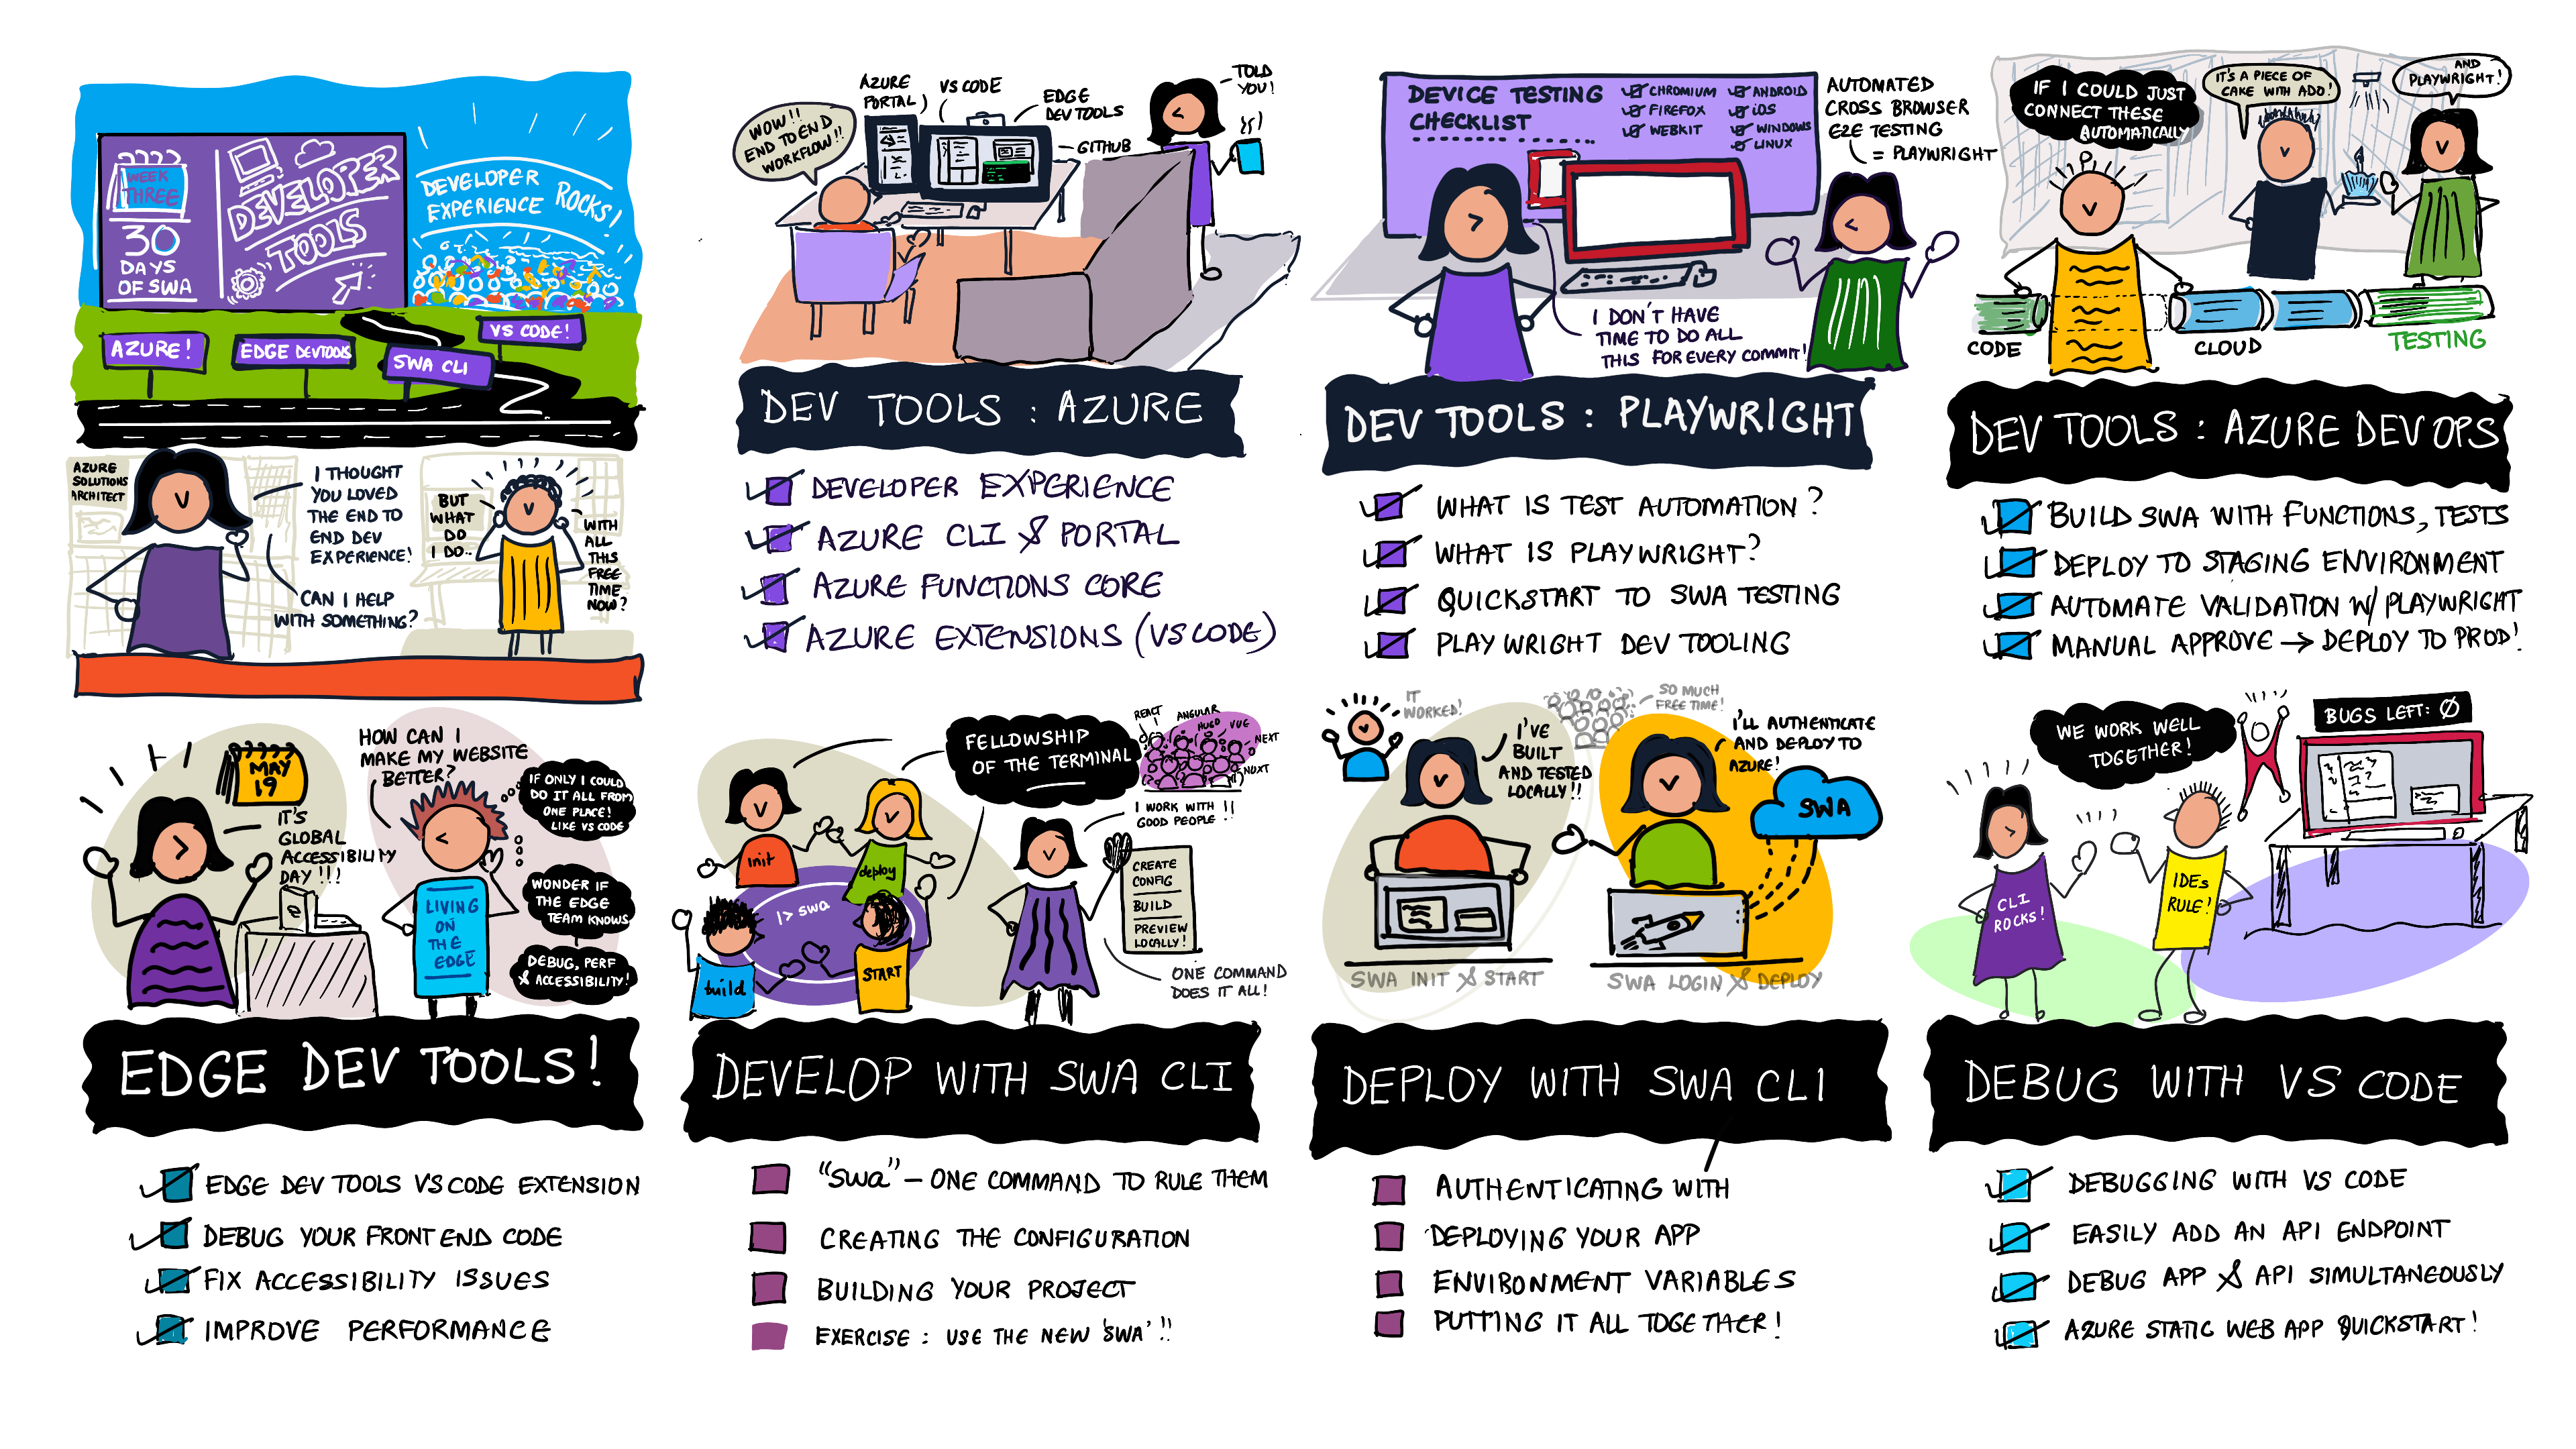 WEEK
THREE
30
DAYS
OF SWA
DEVELOPER
TOOLS
DEVELOPER
EXPERIENCE ROCKS!
AZURE!
EDGE DEVTOOLS
SWA CLI
VS CODE!
AZURE
SOLUTIONS
ARCHITECT
I THOUGHT
YOU LOVED
THE END TO
END DEV
EXPERIENCE!
CAN I HELP
WITH SOMETHING?
BUT
WHAT
DO
I DO..
WITH
ALL
THIS
FREE
TIME
NOW?
WOW!!
END TO END
WORKFLOW!!
AZURE
PORTAL
VS CODE
EDGE
DEV TOOLS
GITHUB
TOLD
YOU!
DEV TOOLS : AZURE
DEVELOPER EXPERIENCE
AZURE CLI & PORTAL
AZURE FUNCTIONS CORE
AZURE EXTENSIONS (VS CODE)
DEVICE TESTING
CHECKLIST
CHROMIUM
FIREFOX
WEBKIT
ANDROID
iOS
WINDOWS
LINUX
AUTOMATED
CROSS BROWSER
E2E TESTING
= PLAYWRIGHT
I DON'T HAVE
TIME TO DO ALL
THIS FOR EVERY COMMIT!
DEV TOOLS : PLAYWRIGHT
WHAT IS TEST AUTOMATION?
WHAT IS PLAYWRIGHT?
QUICKSTART TO SWA TESTING
PLAYWRIGHT DEV TOOLING
IF I COULD JUST
CONNECT THESE
AUTOMATICALLY
IT'S A PIECE OF
CAKE WITH ADO!
AND
PLAYWRIGHT!
CODE
CLOUD
TESTING
DEV TOOLS : AZURE DEVOPS
BUILD SWA WITH FUNCTIONS, TESTS
DEPLOY TO STAGING ENVIRONMENT
AUTOMATE VALIDATION W/ PLAYWRIGHT
MANUAL APPROVE → DEPLOY TO PROD!
MAY
19
IT'S
GLOBAL
ACCESSIBILITY
DAY!!!
e
HOW CAN I
MAKE MY WEBSITE
BETTER?
IF ONLY I COULD
DO IT ALL FROM
ONE PLACE!
LIKE VS CODE
WONDER IF
THE EDGE
TEAM KNOWS
DEBUG, PERF
& ACCESSIBILITY!
LIVING
ON
THE
EDGE
EDGE DEV TOOLS!
EDGE DEV TOOLS VS CODE EXTENSION
DEBUG YOUR FRONT END CODE
FIX ACCESSIBILITY ISSUES
IMPROVE PERFORMANCE
FELLOWSHIP
OF THE TERMINAL
REACT
ANGULAR
HUGO
VUE
NEXT
NUXT
I WORK WITH !!
GOOD PEOPLE
init
deploy
|> swa
build
START
CREATE
CONFIG
BUILD
PREVIEW
LOCALLY!
ONE COMMAND
DOES IT ALL!
DEVELOP WITH SWA CLI
"swa" – ONE COMMAND TO RULE THEM
CREATING THE CONFIGURATION
BUILDING YOUR PROJECT
EXERCISE : USE THE NEW 'SWA' !!
IT
WORKED!
I'VE
BUILT
AND TESTED
LOCALLY!!
SO MUCH
FREE TIME!
I'LL AUTHENTICATE
AND DEPLOY TO
AZURE!
SWA
SWA INIT & START
SWA LOGIN & DEPLOY
DEPLOY WITH SWA CLI
AUTHENTICATING WITH
DEPLOYING YOUR APP
ENVIRONMENT VARIABLES
PUTTING IT ALL TOGETHER!
WE WORK WELL
TOGETHER!
BUGS LEFT: Ø
CLI
ROCKS!
IDEs
RULE!
DEBUG WITH VS CODE
DEBUGGING WITH VS CODE
EASILY ADD AN API ENDPOINT
DEBUG APP & API SIMULTANEOUSLY
AZURE STATIC WEB APP QUICKSTART!